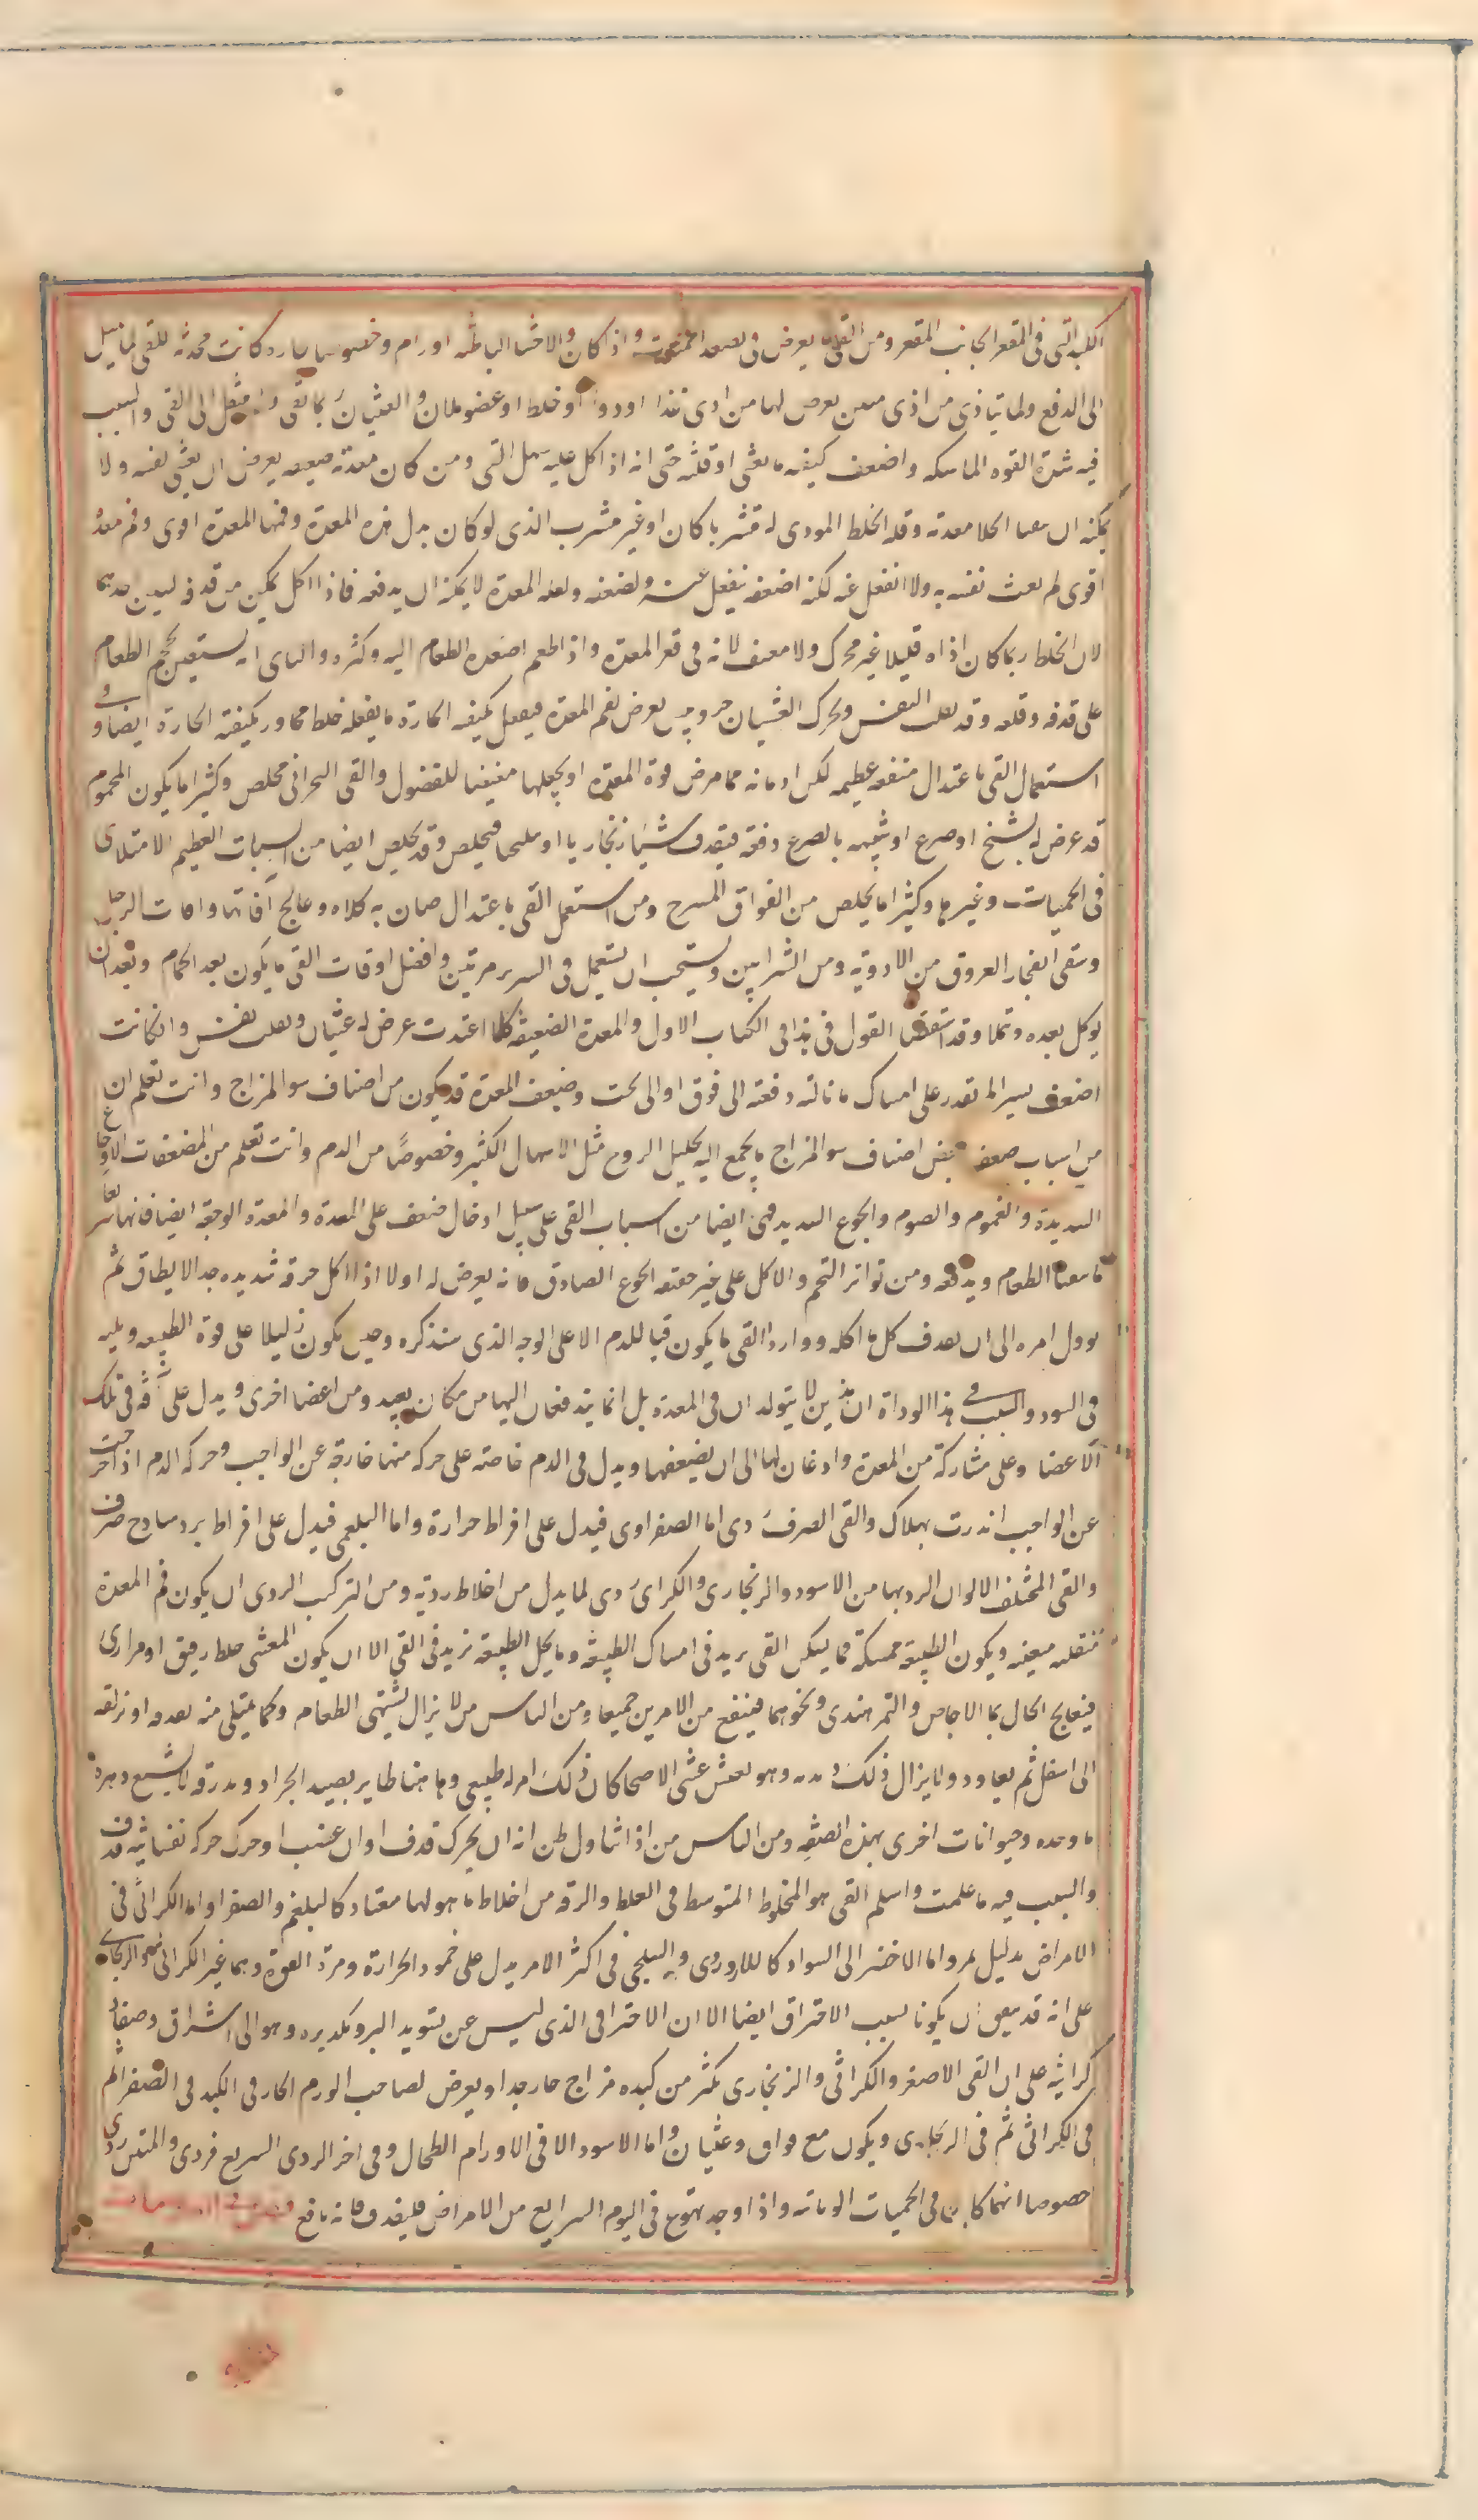 الكبد التى فى المقعر الجانب المقعر ومن القى ما يعرض فى تصعد احتقن واذا كان والاحشا الباطنه اورام وخصوصا حاره كانت محدثه للقى لما يميل
الى الدفع ولما يتاذى من اذى معن يعرض لها من ادى غذا او دوا او خلط او عضو ملان والغثيان بما بقى ولم ينتقل الى القى والسبب
فيه شدة القوه الماسكه واضعف كيفيه ما يغثى او قلته حتى انه اذا اكل عليه سهل القى ومن كان معدته ضعيفه يعرض ان يغثى نفسه ولا
يمكنه ان يقيا لخلا معدته وقله الخلط الموذى له متشربا كان او غير متشرب الذى لو كان بدل هذه المعدة وفمها المعدة اقوى وفم معده
اقوى لم يغث نفسه به ولا انفعل عنه لكنه لضعفه ينفعل عنه ولضعفه ولعله المعدة لا يمكنه ان يدفعه فاذا اكل تمكن من قدفه لسببين احدهما
لان الخلط ربما كان اذاه قليلا غير محرك ولا معنف لانه فى قعر المعدة واذا طعم اصعده الطعام اليه وكثره والثانى انه يستعين بحجم الطعام
على قدفه وقلعه وقد يقلب النفس ويحرك الغثيان حر ويبس يعرض لفم المعدة فيفعل بكيفيه الحارة ما يفعله خلط مجاور بكيفيته الحارة ايضا وفى
استعمال القى باعتدال منفعه عظيمه لكن ادمانه مما يمرض قوة المعدة او يجعلها مغيضا للفضول والقى البحرانى مخلص وكثيرا ما يكون المحموم
قد عرض له تشنج او صرع او شبيهه بالصرع دفعة فيقذف شيئا زنجاريا او نيلجيا فيخلص وقد يخلص ايضا من السبات العظيم الامتلاى
فى الحميات وغيرها وكثيرا ما يخلص من الفواق المبرح ومن استعمل القى باعتدال صان به كلاه وعالج آفاتها وافات الرجل
وشفى انفجار العروق من الاوردة ومن الشرايين ويستحب ان يستعمل فى الشهر مرتين وافضل اوقات القى ما يكون بعد الحمام وبعد ان
يوكل بعده وتملا وقد استقصينا القول فى هذا فى الكتاب الاول والمعدة الضعيفة كلما اغتدت عرض له غثيان وتقلب نفس وان كانت
اضعف يسيرا لم تقدر على امساك ما نالته دفعته الى فوق او الى تحت وضعف المعدة قد يكون من اصناف سو المزاج وانت تعلم ان
من اسباب ضعف بعض اصناف سو المزاج ما يجمع اليه تحليل الروح مثل الاسهال الكثير وخصوصًا من الدم وانت تعلم من المضعفات الاوجاع
الشديدة والغموم والصوم والجوع الشديد فهى ايضا من اسباب القى على سبيل ادخال ضعف على المعدة والمعدة الوجعة ايضا فانها سريعا
ما تعاف الطعام وتدفعه ومن تواتر التخم والاكل على غير حقيقه الجوع الصادق فانه يعرض له اولا اذا اكل حرقة شديده جدا لا يطاق ثم
يوول امره الى ان يقذف كل ما اكله ووارد القى ما يكون قيا للدم الا على الوجه الذى سنذكره وحين يكون دليلا على قوة الطبيعه ويليه
قى السودا والسبب فى هذا الرداة ان هذين لا يتولدان فى المعدة بل انما يندفعان اليها من مكان بعيد ومن اعضا اخرى ويدل على آفه فى تلك
الاعضا وعلى مشاركة من المعدة واذعان لها الى ان يضعفها ويدل فى الدم خاصة على حركه منها خارجة عن الواجب وحركه الدم اذا خرجت
عن الواجب انذرت بهلاك والقى الصرف ردى اما الصفراوى فيدل على افراط حرارة واما البلغمى فيدل على افراط برد ساذج صرف
والقى المختلف الالوان الرديها من الاسود والزنجارى والكراثى ردى لما يدل من اخلاط رديه ومن التركيب الردى ان يكون فم المعدة
منقلبه معينه ويكون الطبيعة ممسكة فما يسكن القى يزيد فى امساك الطبيعة وما يحل الطبيعة يزيد فى القى الا ان يكون المغثى خلطا رقيق او مرارى
فيعالج الحال بما الاجاص والتمر هندى ونحوهما فينفع من الامرين جميعا ومن الناس من لا يزال يشتهى الطعام وكما يمتلى منه يقدفه او يزلقه
الى اسفل ثم يعاود ولا يزال ذلك ديدنه وهو يعيش عيش الاصحا كان ذلك امر له طبيعى وها هنا طاير يصيد الجراد ويدرقه ولا يشبع دهره
ما وجده وحيوانات اخرى بهذه الصفه ومن الناس من اذا تناول ظن انه ان تحرك قدف او ان غضب او حرك حركه نفسانيه قدف
والسبب فيه ما علمت واسلم القى هو المخلوط المتوسط فى الغلظ والرقه من اخلاط ما هو لها معتاد كالبلغم والصفرا واما الكراثى فى
الامراض دليل شر واما الاخضر الى السواد كاللازوردى والنيلجى فى اكثر الامر يدل على خمود الحرارة ومرة القوة وهما غير الكراثى والزنجارى
على انه قد يتفق ان يكونا بسبب الاحتراق ايضا الا ان الاحتراقى الذى ليس عن تسويد البرد وتكديره وهو الى اشراق وصفا
كراثيه على ان القى الاصفر والكراثى والزنجارى يكثر من كبده مزاج حار جدا ويعرض لصاحب الورم الحار فى الكبد قى الصفرا ثم
قى الكراثى ثم قى الزنجارى ويكون مع فواق وغثيان واما الاسود الا فى الاورام الطحال وفى اخر الردى السريع فردى والمنتن ردى
خصوصا انهما كان فى الحميات الوبائيه واذا وجد تهوع فى اليوم الرابع من الامراض فليقدف فانه نافع